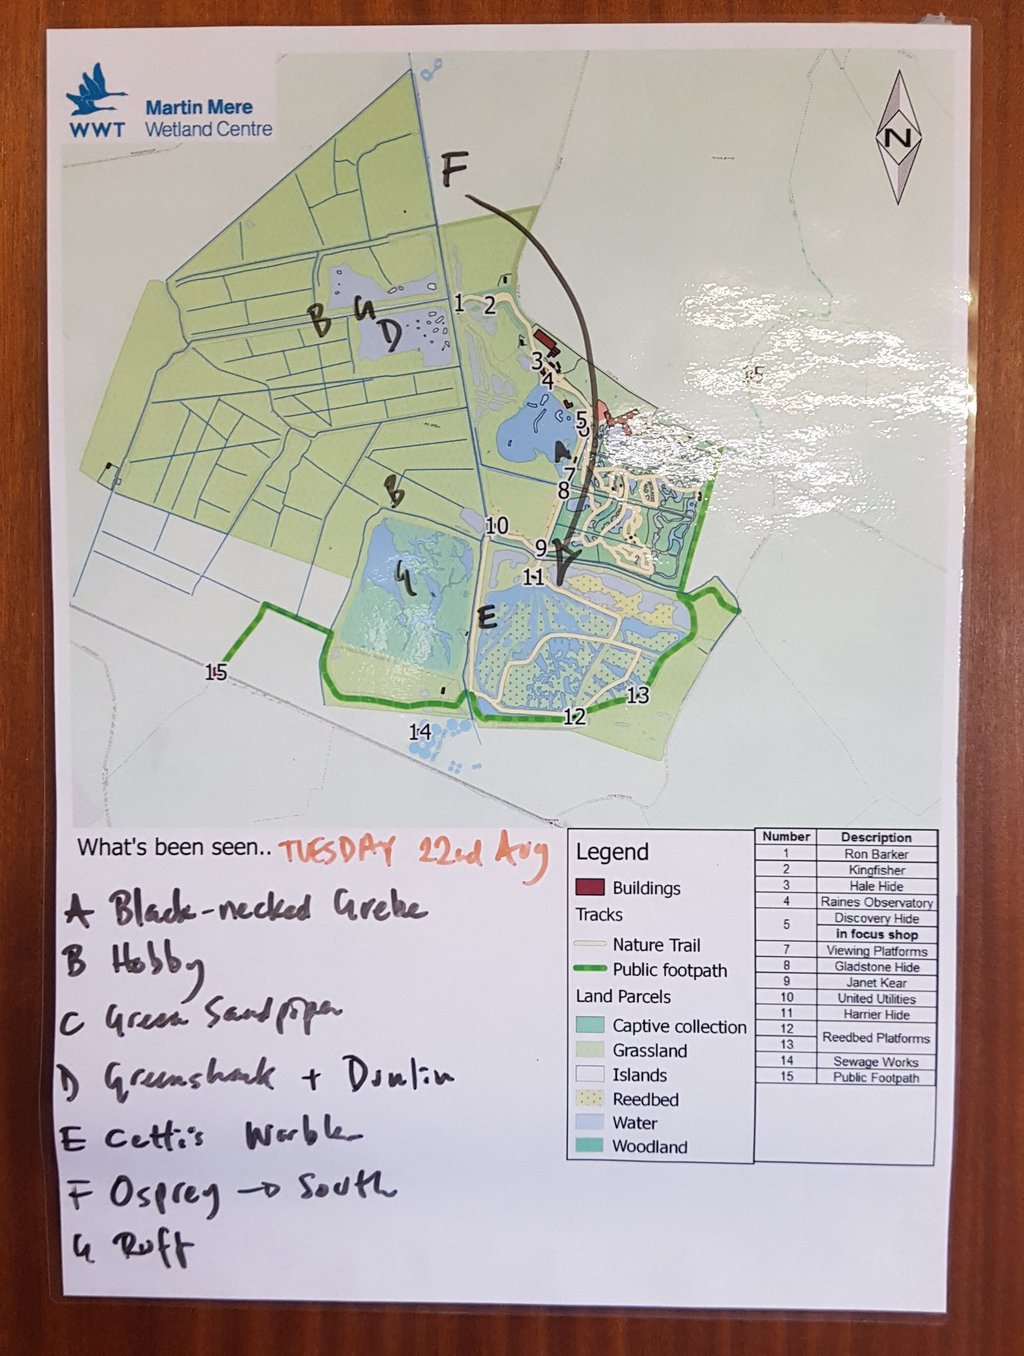 WWT
Martin Mere
Wetland Centre
N
F
B G D
1 2
3
4
5
A
7
8
B
10
9
11
G
E
15
13
12
14
What's been seen.. TUESDAY 22nd Aug
A Black-necked Grebe
B Hobby
C Green Sandpiper
D Greenshank + Dunlin
E Cetti's Warbler
F Osprey → South
G Ruff
Legend
Buildings
Tracks
Nature Trail
Public footpath
Land Parcels
Captive collection
Grassland
Islands
Reedbed
Water
Woodland
Number Description
1 Ron Barker
2 Kingfisher
3 Hale Hide
4 Raines Observatory
5 Discovery Hide
in focus shop
7 Viewing Platforms
8 Gladstone Hide
9 Janet Kear
10 United Utilities
11 Harrier Hide
12
13 Reedbed Platforms
14 Sewage Works
15 Public Footpath